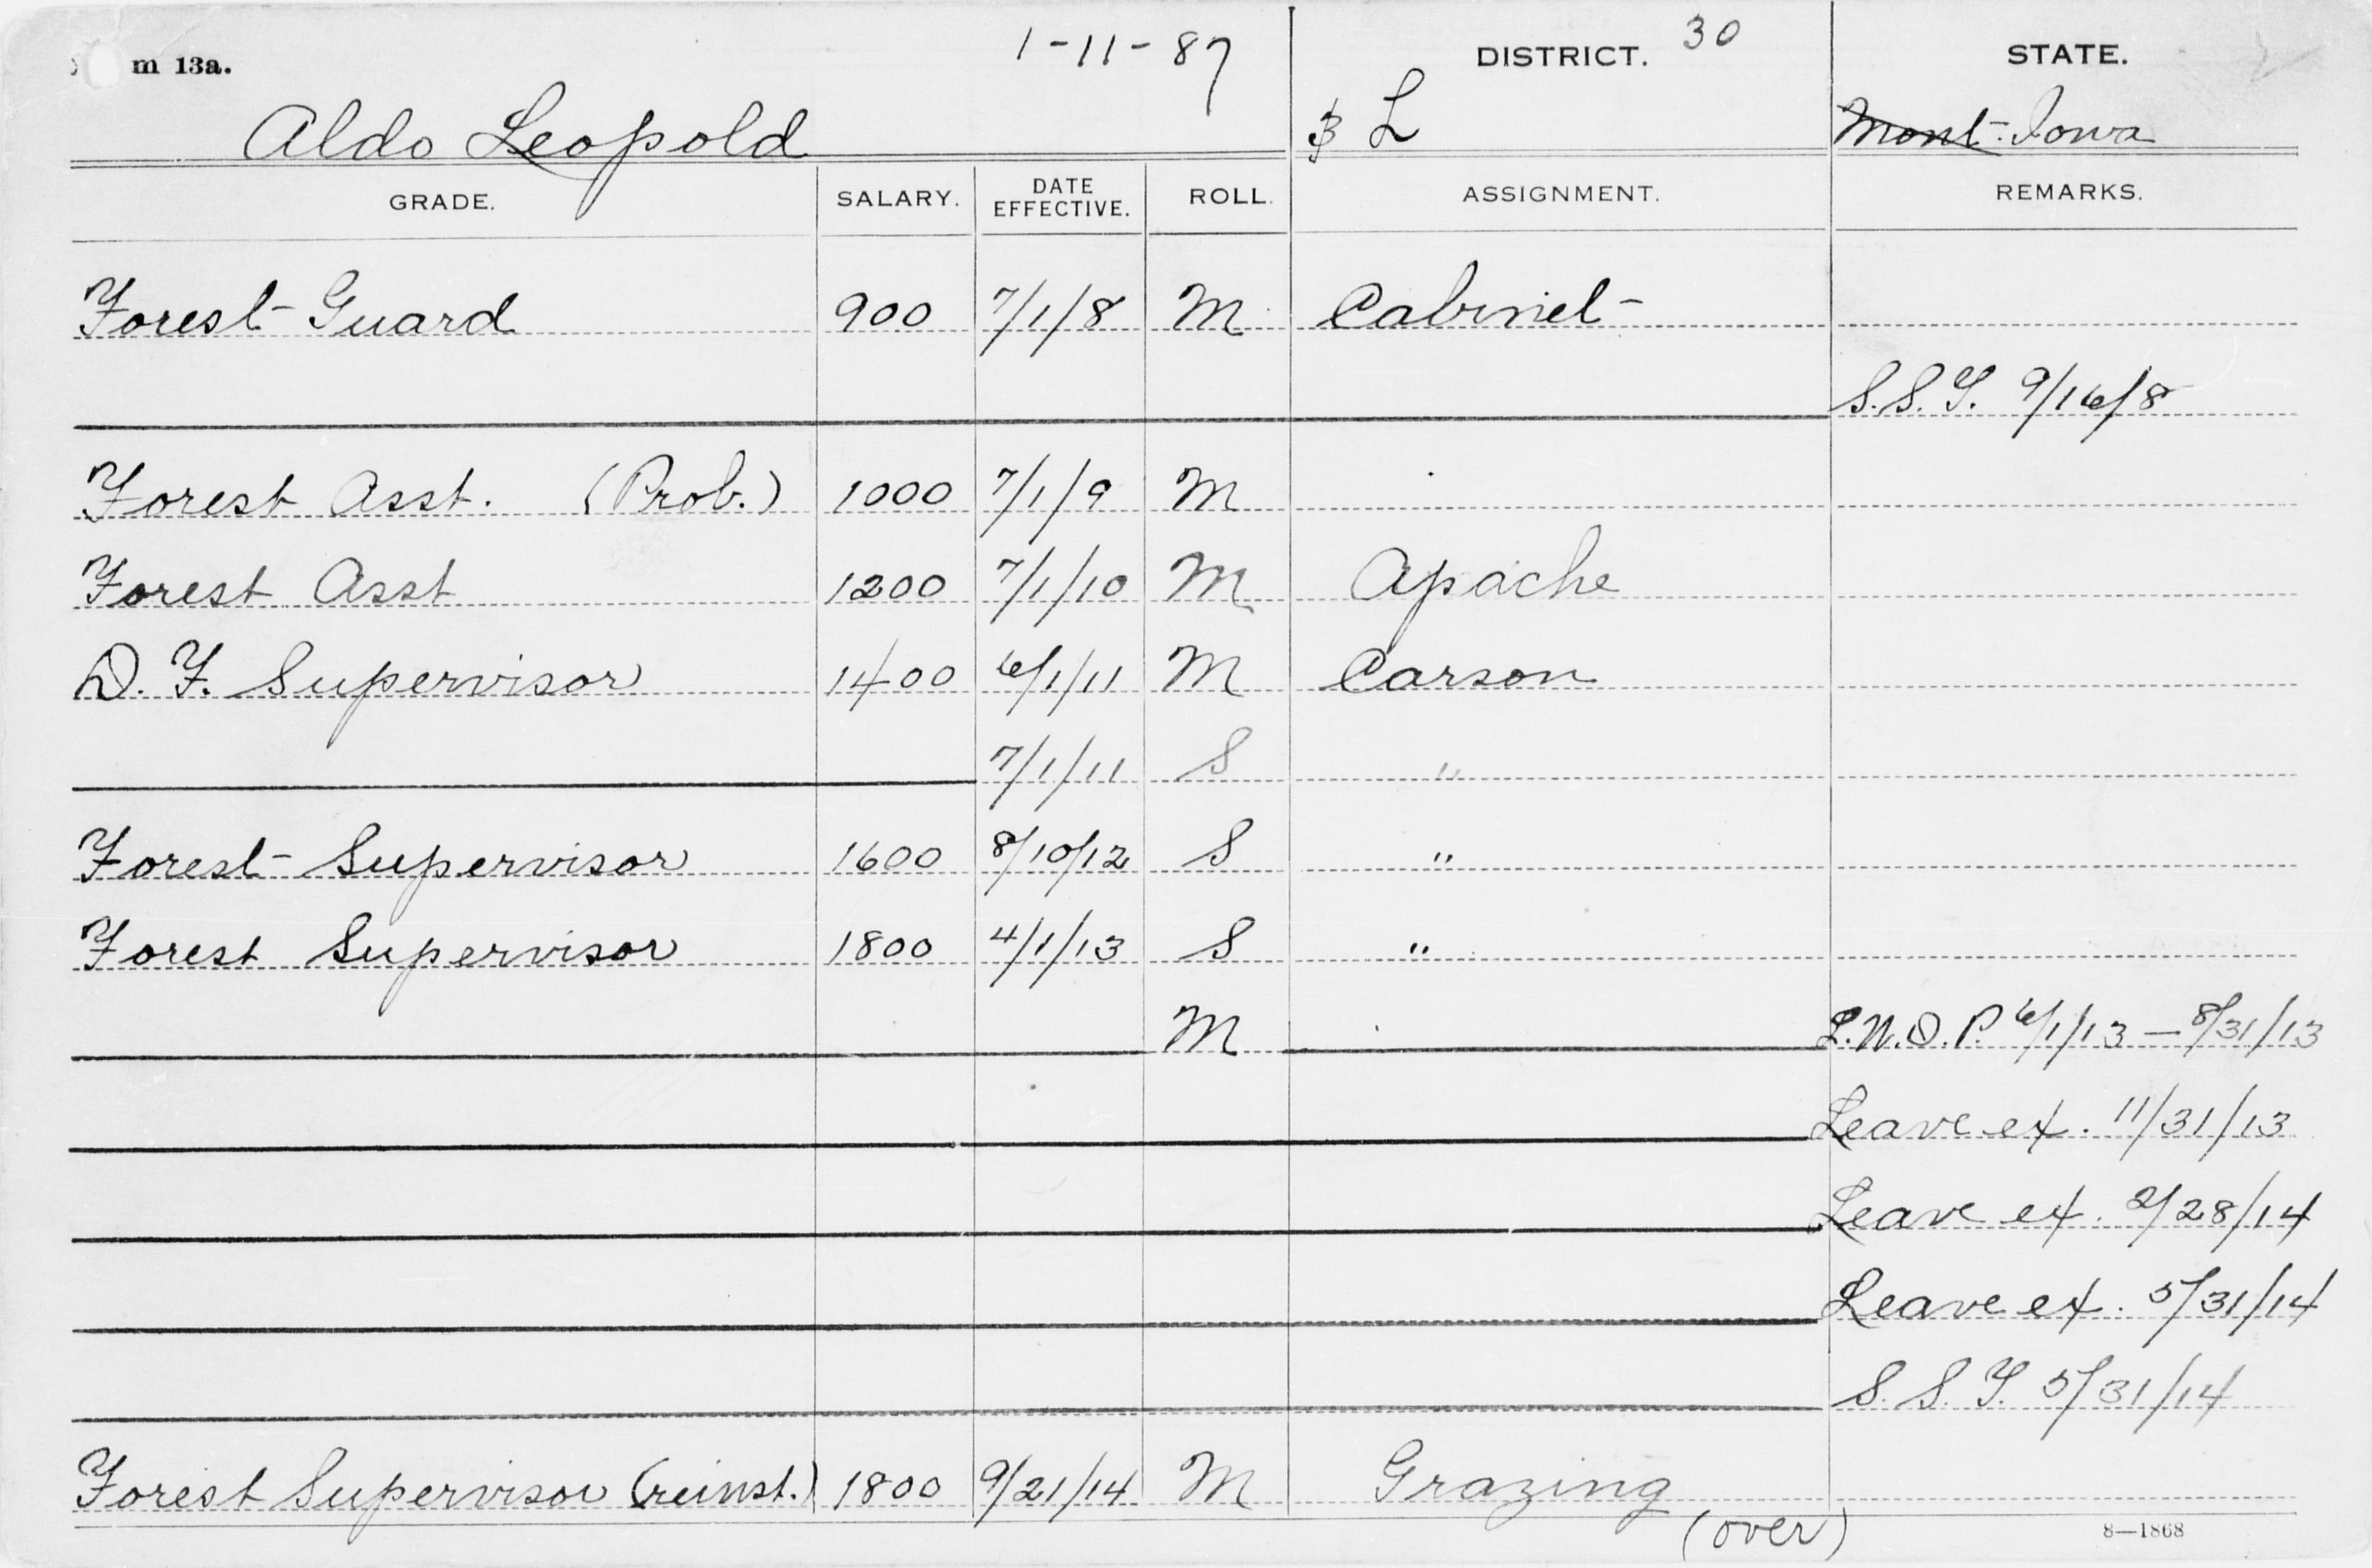 m 13a. 1-11-87 DISTRICT. 30 STATE.
Aldo Leopold 3 L Mont. Iowa
GRADE. SALARY. DATE EFFECTIVE. ROLL. ASSIGNMENT. REMARKS.
Forest Guard 900 7/1/8 M Cabinet
S.S.Y. 9/16/8
Forest Asst. (Prob.) 1000 7/1/9 M
Forest Asst 1200 7/1/10 M Apache
D. F. Supervisor 1400 6/1/11 M Carson
7/1/11 S "
Forest Supervisor 1600 8/10/12 S "
Forest Supervisor 1800 4/1/13 S "
M L.W.O.P. 6/1/13 — 8/31/13
Leave ex. 11/31/13
Leave ex. 2/28/14
Leave ex. 5/31/14
S. S. Y. 5/31/14
Forest Supervisor (reinst.) 1800 9/21/14 M Grazing
(over) 8—1868